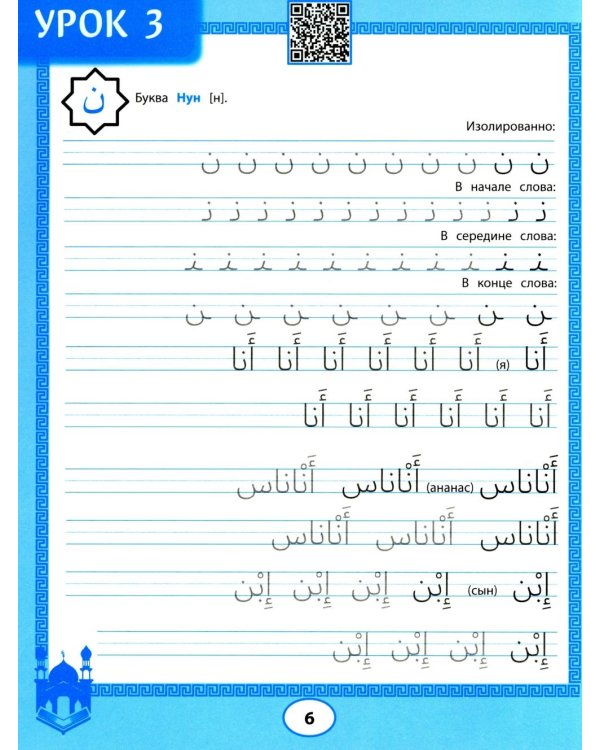 УРОК 3
ن
Буква Нун [н].
Изолированно:
ن ن ن ن ن ن ن ن ن ن
В начале слова:
نـ نـ نـ نـ نـ نـ نـ نـ نـ نـ نـ نـ نـ
В середине слова:
ـنـ ـنـ ـنـ ـنـ ـنـ ـنـ ـنـ ـنـ ـنـ ـنـ ـنـ
В конце слова:
ـن ـن ـن ـن ـن ـن ـن ـن
أَنا (я) أَنا أَنا أَنا أَنا أَنا أَنا
أَنا أَنا أَنا أَنا أَنا أَنا
أَنْاناس (ананас) أَنْاناس أَنْاناس
أَنْاناس أَنْاناس أَنْاناس
إِبْن (сын) إِبْن إِبْن إِبْن إِبْن
إِبْن إِبْن إِبْن إِبْن
6